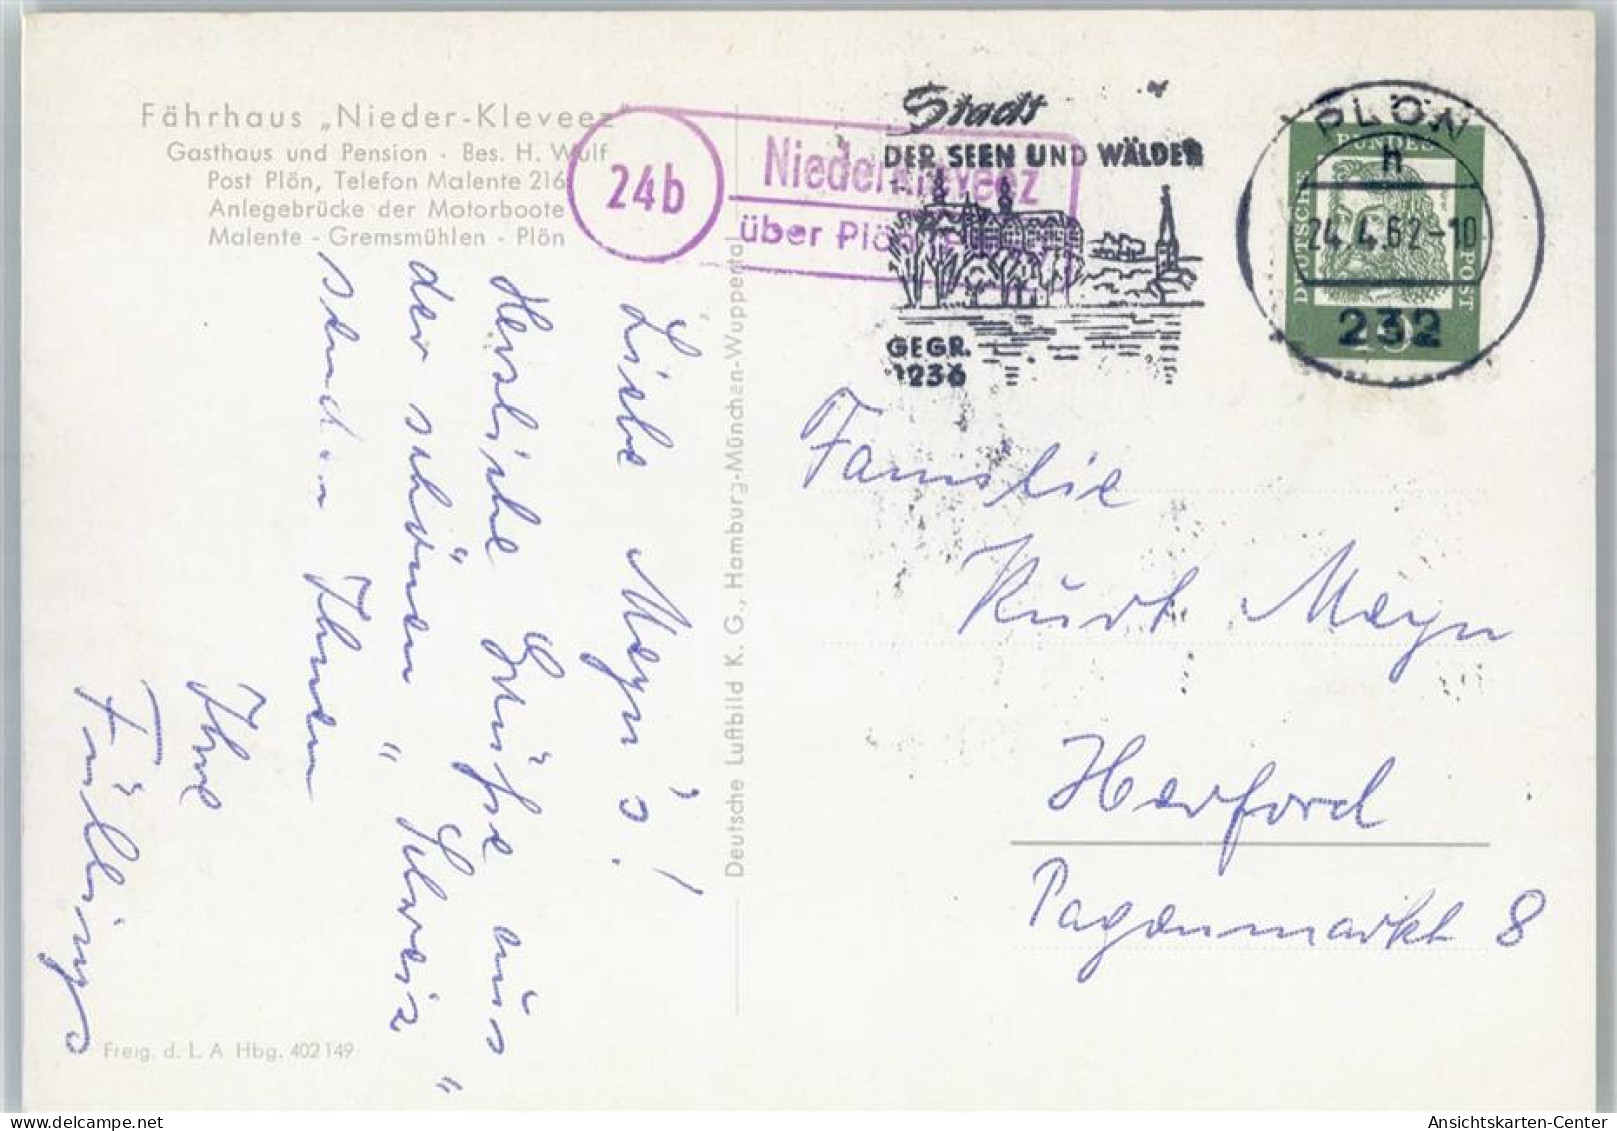 Fährhaus „Nieder-Kleveez"
Gasthaus und Pension · Bes. H. Wulf
Post Plön, Telefon Malente 216
Anlegebrücke der Motorboote
Malente - Gremsmühlen - Plön
24b
Niederkleveez
über Plön
Stadt
DER SEEN UND WÄLDER
GEGR.
1236
PLÖN
h
24.4.62-10
232
DEUTSCHE
BUNDES
POST
10
Liebe Meyn's!
Herzliche Grüße aus
der schönen „Schweiz"
senden Ihnen
Ihre
Füllings
Deutsche Luftbild K. G., Hamburg-München-Wuppertal
Familie
Kurt Meyn
Herford
Pagenmarkt 8
Freig. d. L. A Hbg. 402149
Ansichtskarten-Center